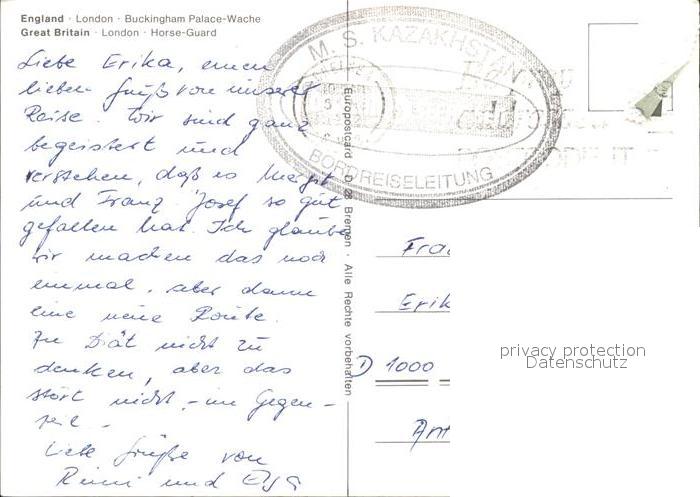 England · London · Buckingham Palace-Wache
Great Britain · London · Horse-Guard
Liebe Erika, einen
lieben Gruß von unserer
Reise. Wir sind ganz
begeistert und
verstehen, daß es Margit
und Franz Josef so gut
gefallen hat. Ich glaube
wir machen das noch
einmal, aber dann
eine neue Route.
Zu Diät nicht zu
denken, aber das
stört nicht, - im Gegen-
teil -
Liebe Grüße von
und
Europostcard · D 28 Bremen · Alle Rechte vorbehalten
M. S. KAZAKHSTAN
BORDREISELEITUNG
Frau
Erik
D 1000
privacy protection
Datenschutz